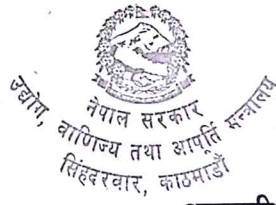 नेपाल सरकार
उद्योग, वाणिज्य तथा आपूर्ति मन्त्रालय
सिंहदरवार, काठमाडौं